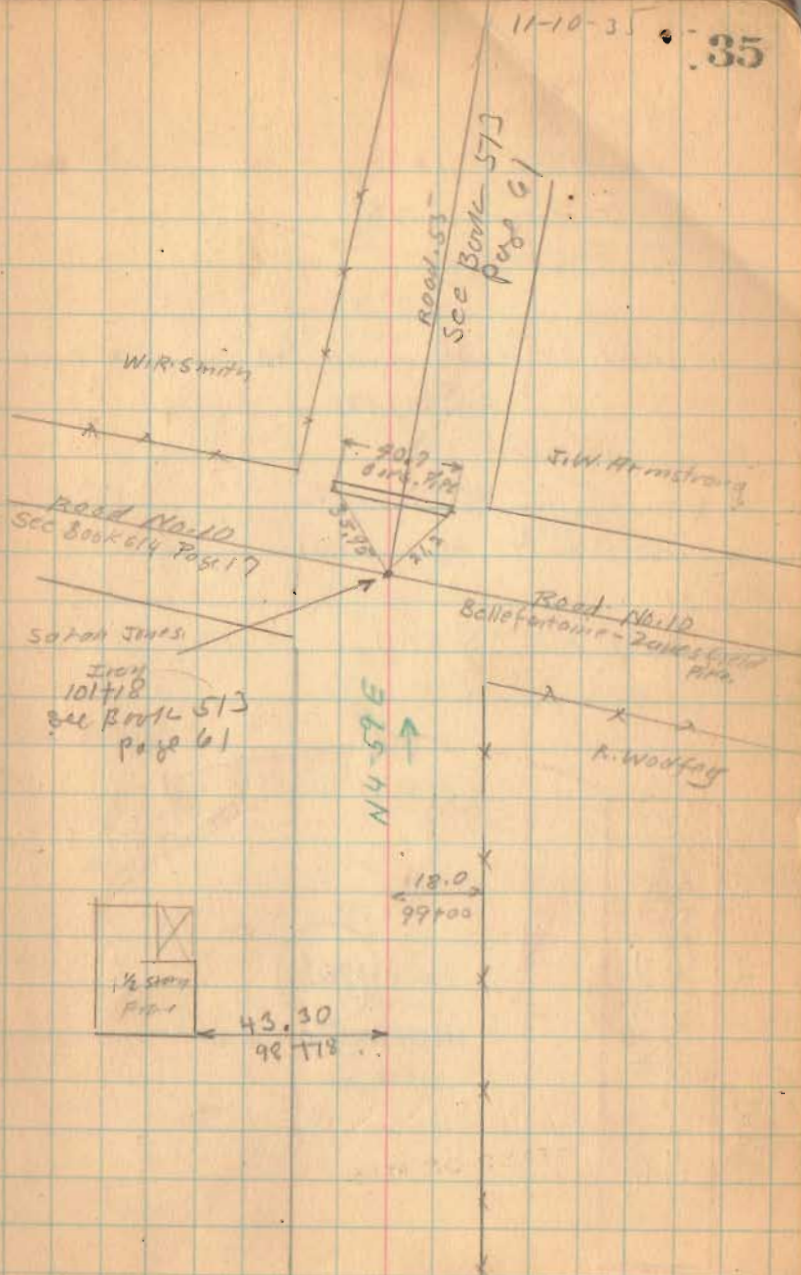 11-10-35
35
Road 55
See Book 513
page 61
W.R. Smith
40.7
J.W. Armstrong
35.95
21.2
Road No. 10
See Book 614 Page 17
Road No. 10
Bellefontaine - Zanesfield
Pike
Sarah Jones
Iron
101+18
See Book 513
page 61
N4-59E
18.0
99+00
1½ Story
Frame
43.30
98+18